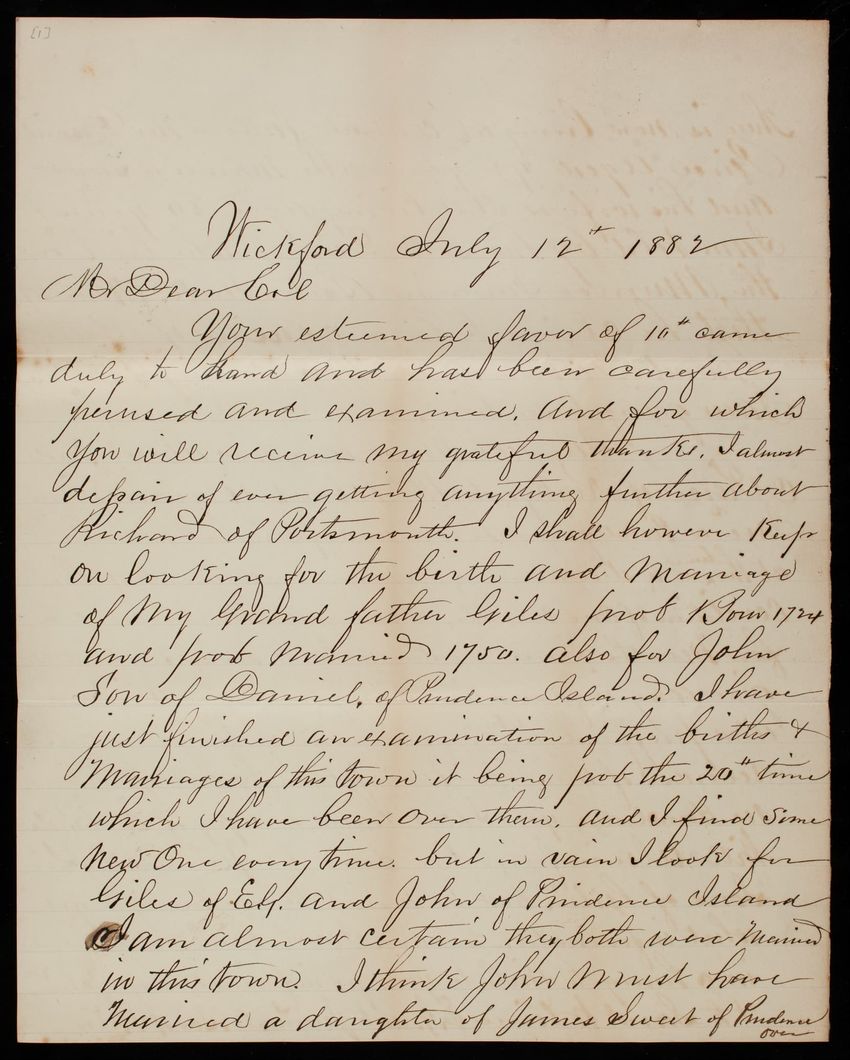 [1]
Wickford July 12th 1882
My Dear Col
Your esteemed favor of 10th came
duly to hand and has been carefully
perused and examined. and for which
you will receive my grateful thanks. I almost
depair of ever getting anything further about
Richard of Portsmouth. I shall howeve Keep
on looking for the birth and Marriage
of My Grand father Giles prob Born 1724
and prob married 1750. also for John
Son of Daniel, of Prudence Island. I have
just finished an examination of the births &
Marriages of this town it being prob the 20th time
which I have been over them. and I find some
New One every time. but in vain I look for
Giles of EG. and John of Prudence Island
I am almost certain they both were Married
in this town. I think John Must have
Married a daughter of James Sweet of Prudence
over